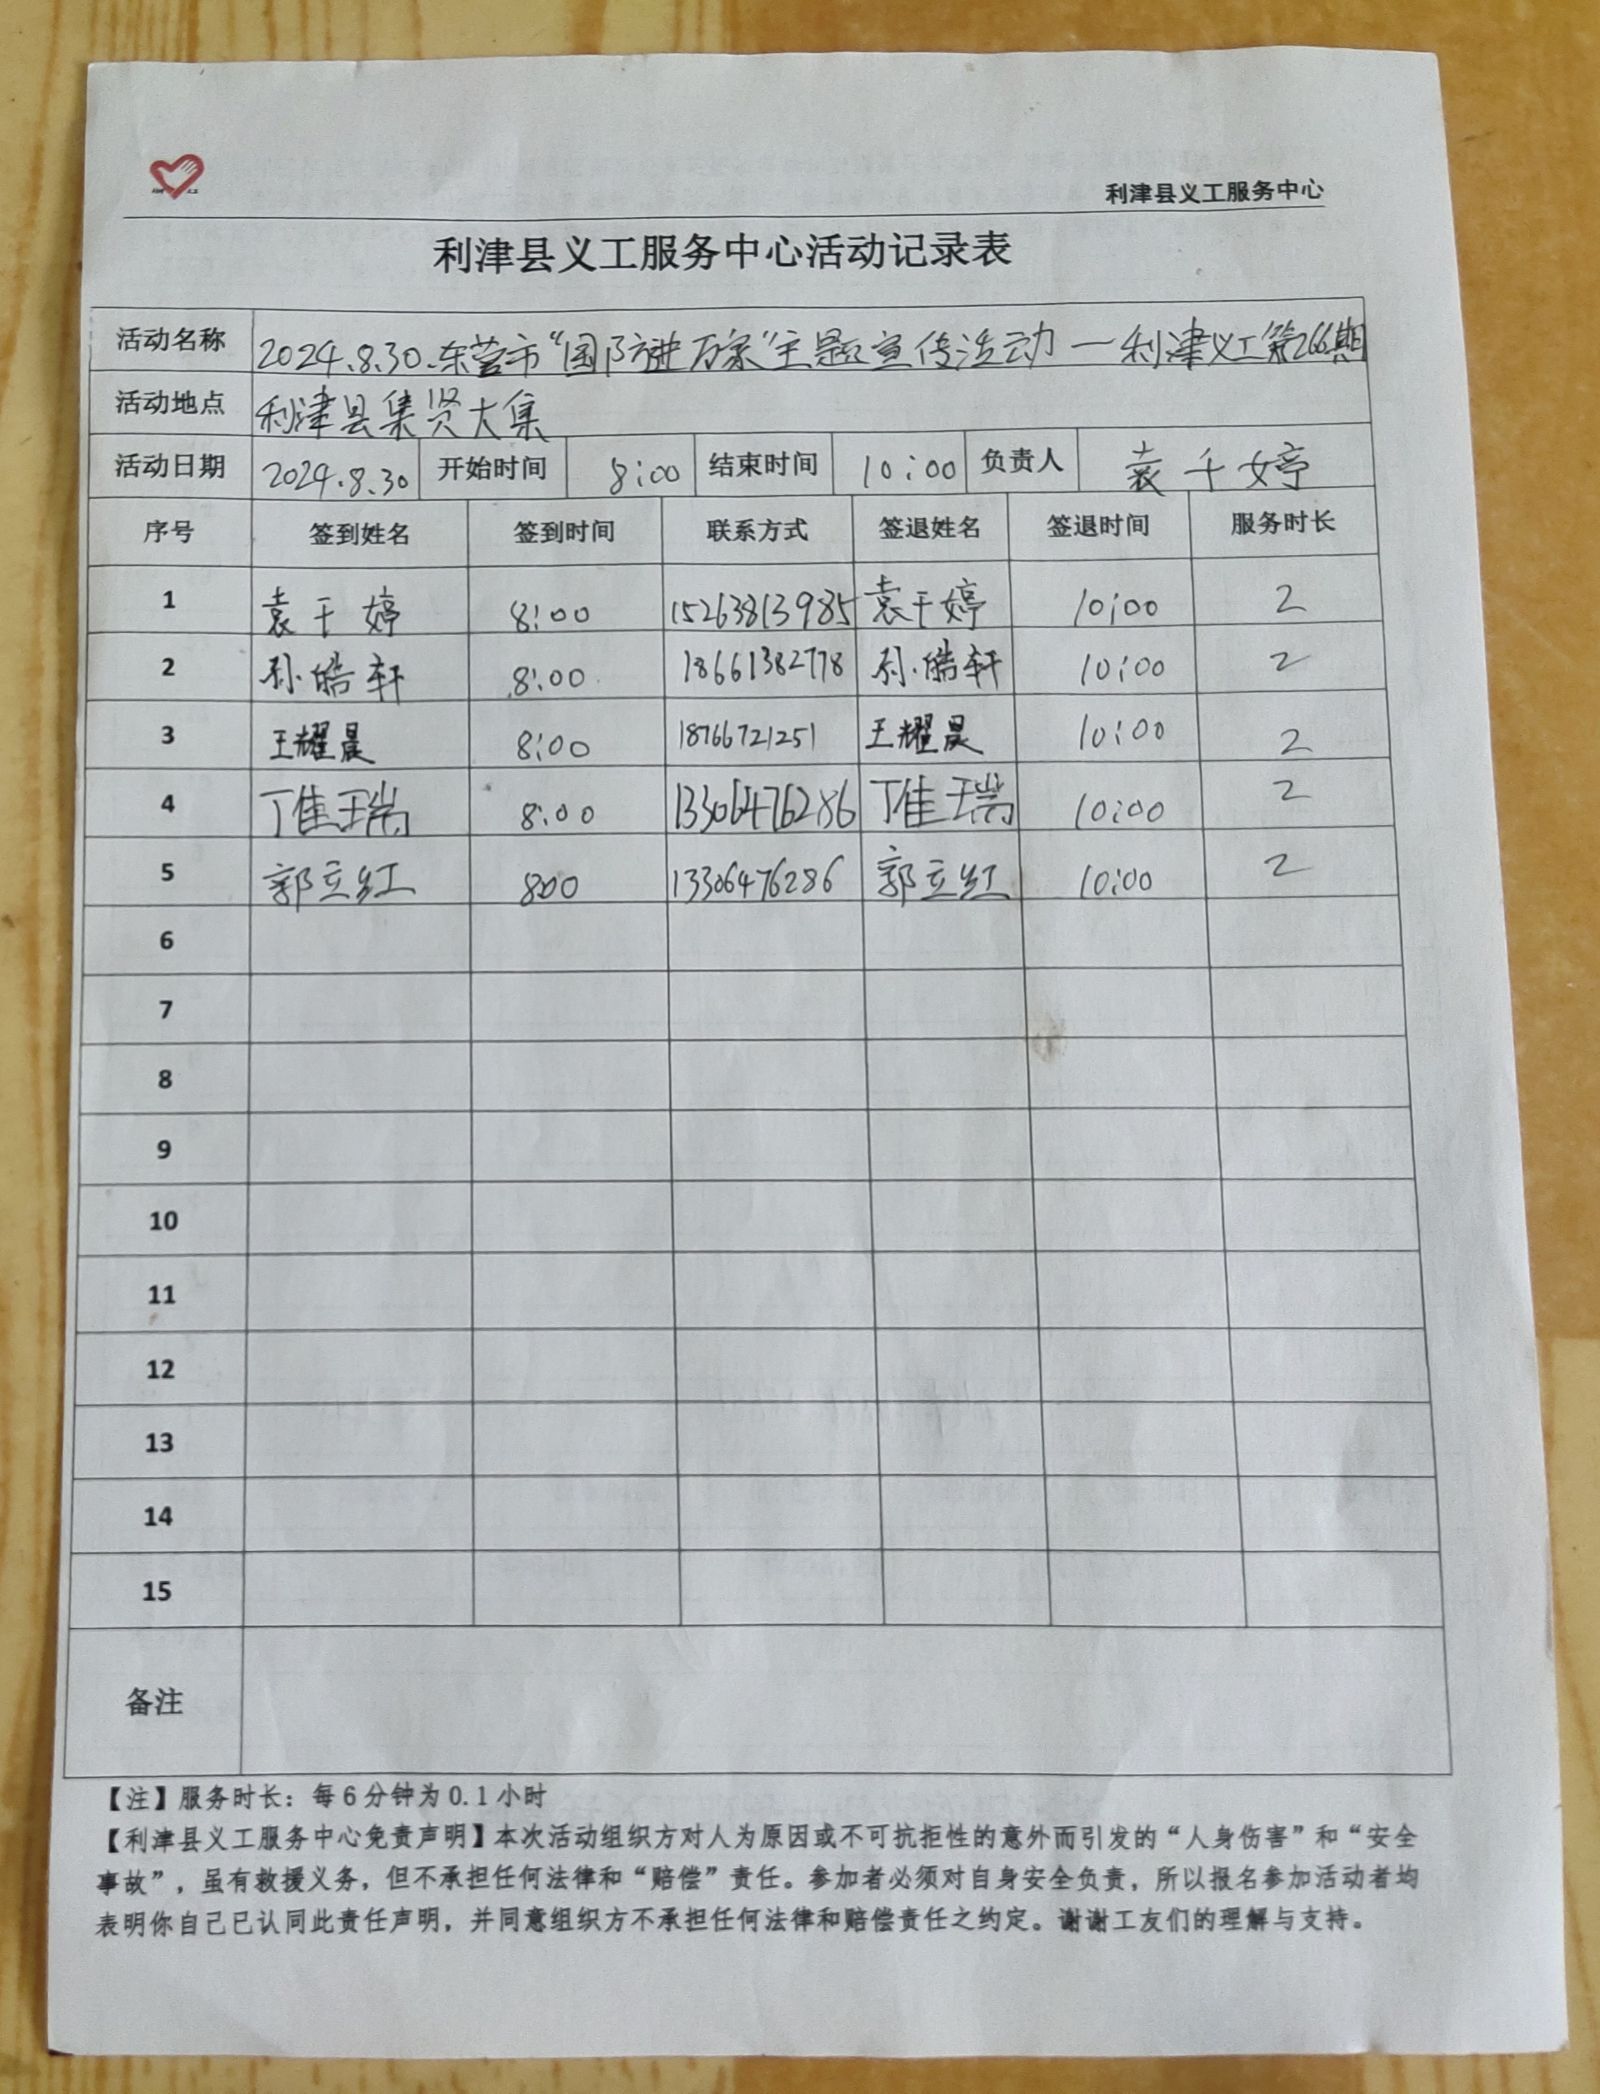 利津县义工服务中心
利津县义工服务中心活动记录表
活动名称 2024.8.30.东营市“国防进万家”主题宣传活动—利津义工第266期
活动地点 利津县集贤大集
活动日期 2024.8.30 开始时间 8:00 结束时间 10:00 负责人 袁千婷
序号 签到姓名 签到时间 联系方式 签退姓名 签退时间 服务时长
1 袁千婷 8:00 15263813985 袁千婷 10:00 2
2 孙皓轩 8:00 18661382778 孙皓轩 10:00 2
3 王耀晨 8:00 18766721251 王耀晨 10:00 2
4 丁佳瑞 8:00 13306476286 丁佳瑞 10:00 2
5 郭立红 8:00 13306476286 郭立红 10:00 2
6
7
8
9
10
11
12
13
14
15
备注
【注】服务时长：每6分钟为0.1小时
【利津县义工服务中心免责声明】本次活动组织方对人为原因或不可抗拒性的意外而引发的“人身伤害”和“安全
事故”，虽有救援义务，但不承担任何法律和“赔偿”责任。参加者必须对自身安全负责，所以报名参加活动者均
表明你自己已认同此责任声明，并同意组织方不承担任何法律和赔偿责任之约定。谢谢工友们的理解与支持。